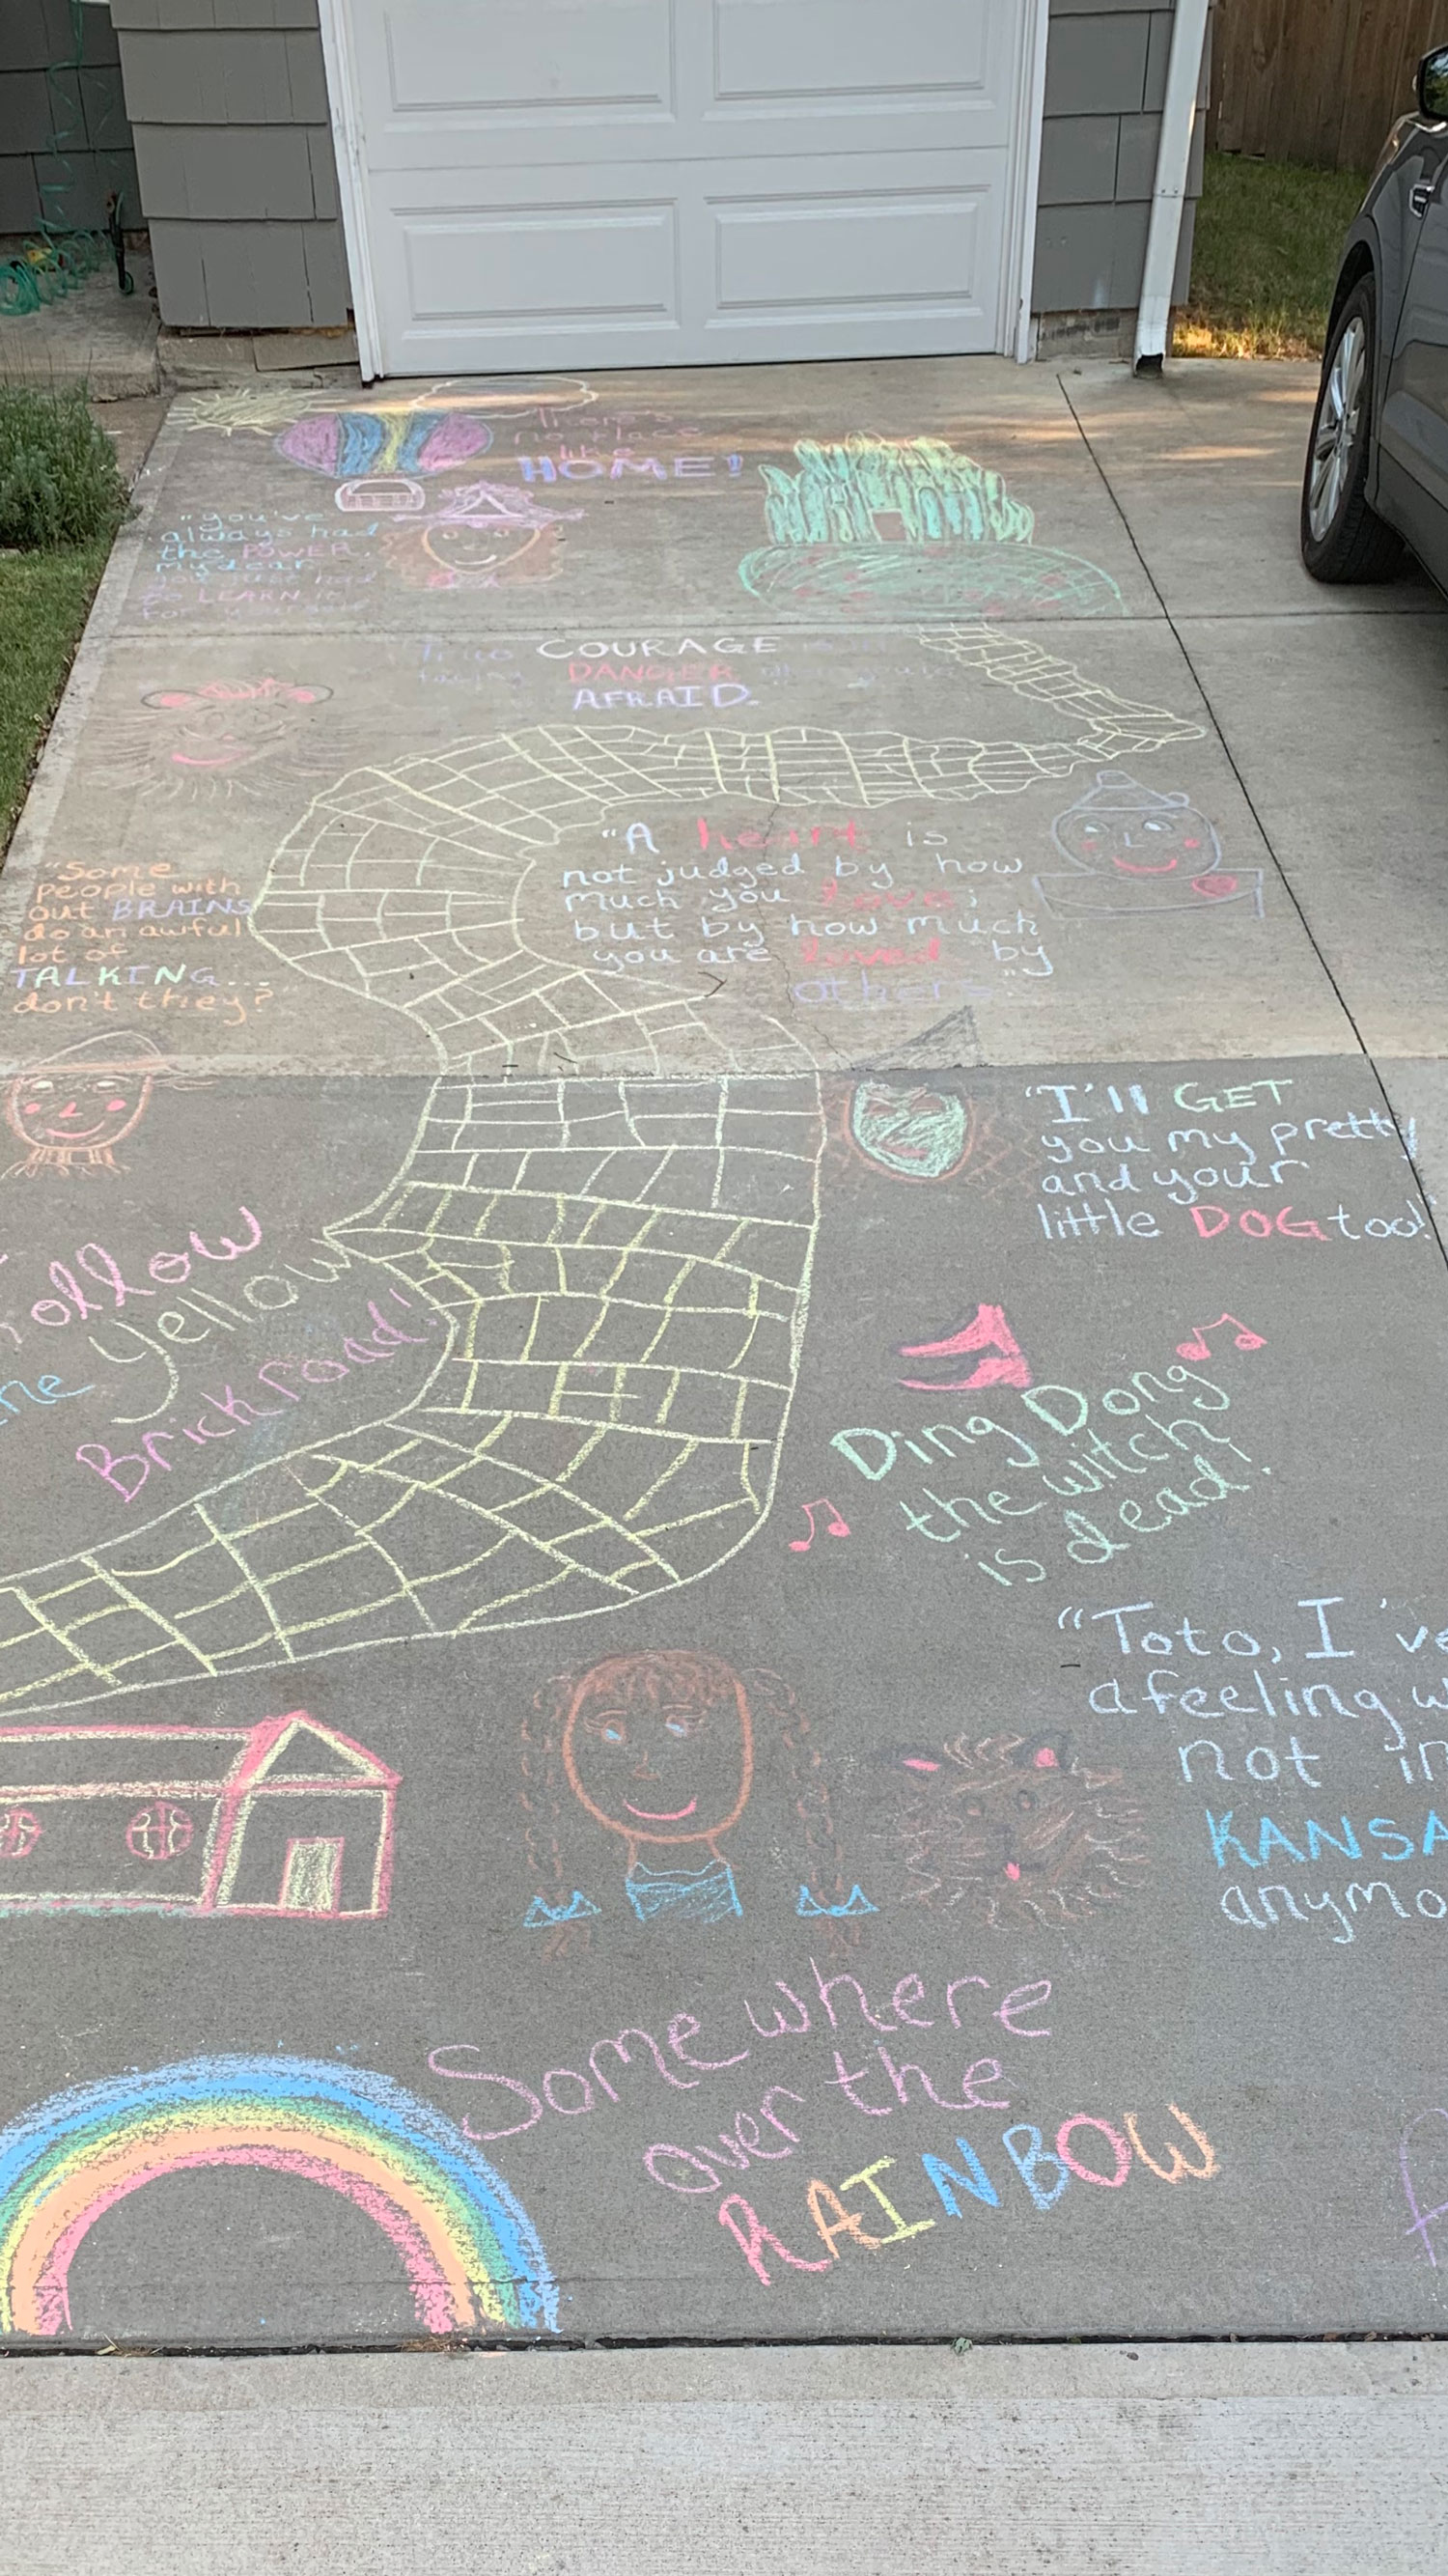 There's
no place
like
HOME!
"you've
always had
the POWER,
my dear
you just had
to LEARN it
for yourself
True COURAGE is in
facing DANGER when you're
AFRAID."
"A heart is
not judged by how
much you love;
but by how much
you are loved by
others."
"Some
people with
out BRAINS
do an awful
lot of
TALKING...
don't they?"
"I'll GET
you my pretty
and your
little DOG too!"
Follow
the Yellow
Brick road!
Ding Dong
the witch
is dead!
"Toto, I've
a feeling
not in
KANSA
anymo
Some where
over the
RAINBOW